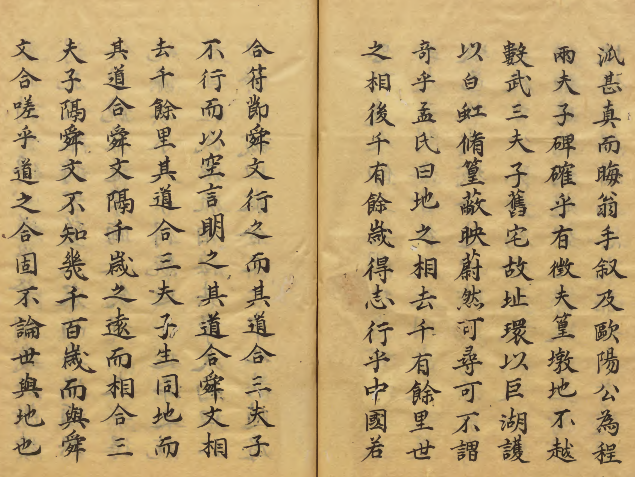 派甚真而晦翁手叙及歐陽公為程
兩夫子碑確乎有徴夫篁墩地不越
數武三夫子舊宅故址環以巨湖護
以白虹脩篁蔽映蔚然可尋可不謂
奇乎孟氏曰地之相去千有餘里世
之相後千有餘嵗得志行乎中國若
合符節舜文行之而其道合三夫子
不行而以空言明之其道合舜文相
去千餘里其道合三夫子生同地而
其道合舜文隔千嵗之遠而相合三
夫子隔舜文不知幾千百嵗而與舜
文合嗟乎道之合固不論世與地也